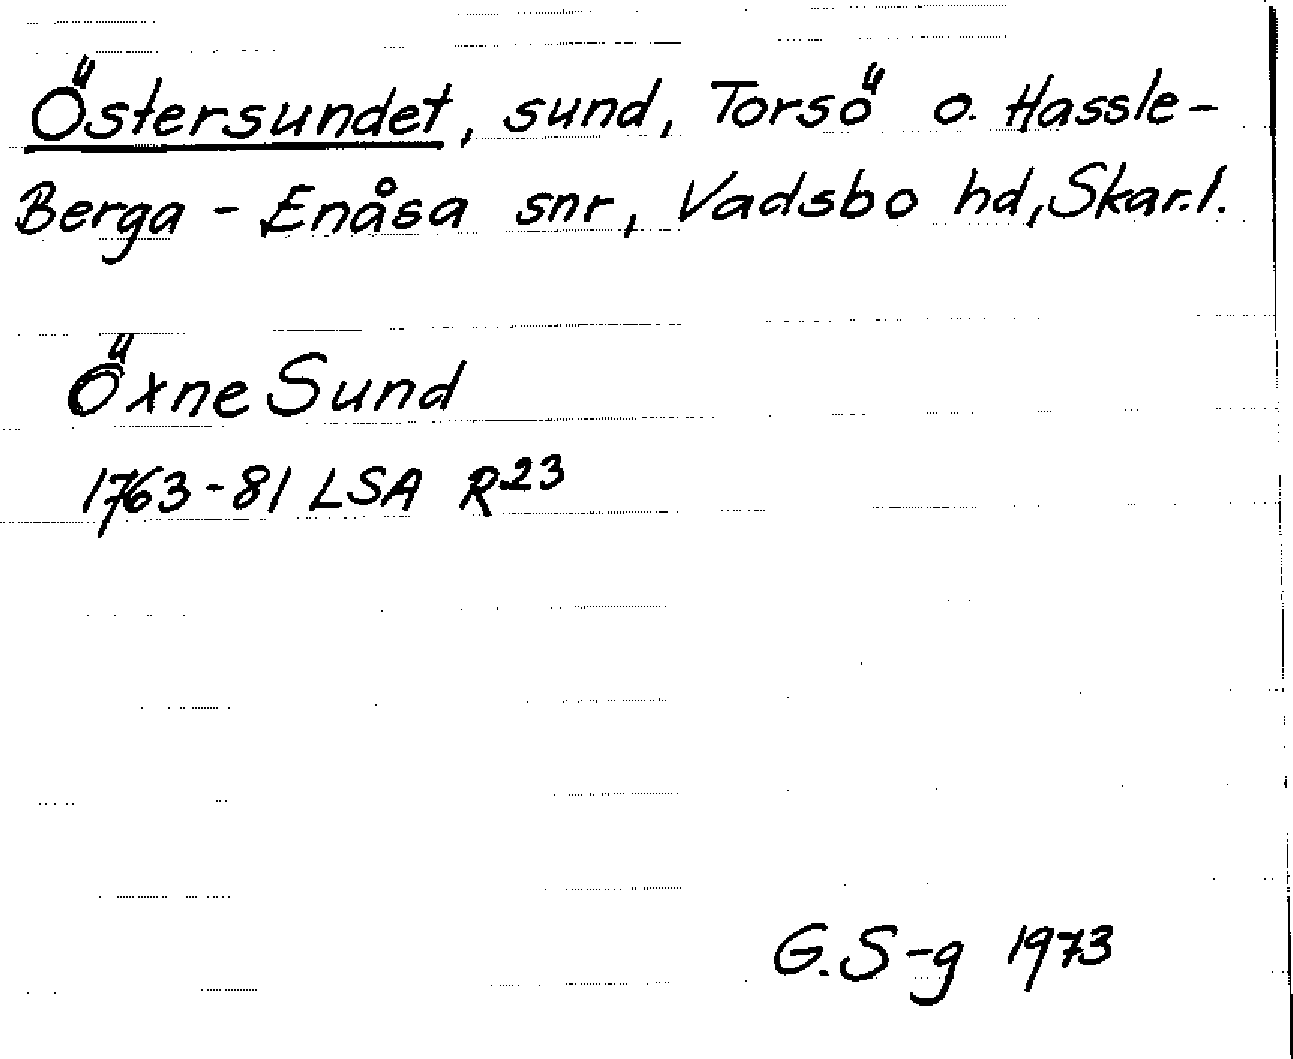 Östersundet, sund, Torsö o. Hassle-
Berga - Enåsa snr, Vadsbo hd, Skar.l.
Öxne Sund
1763-81 LSA R23
G.S-g 1973